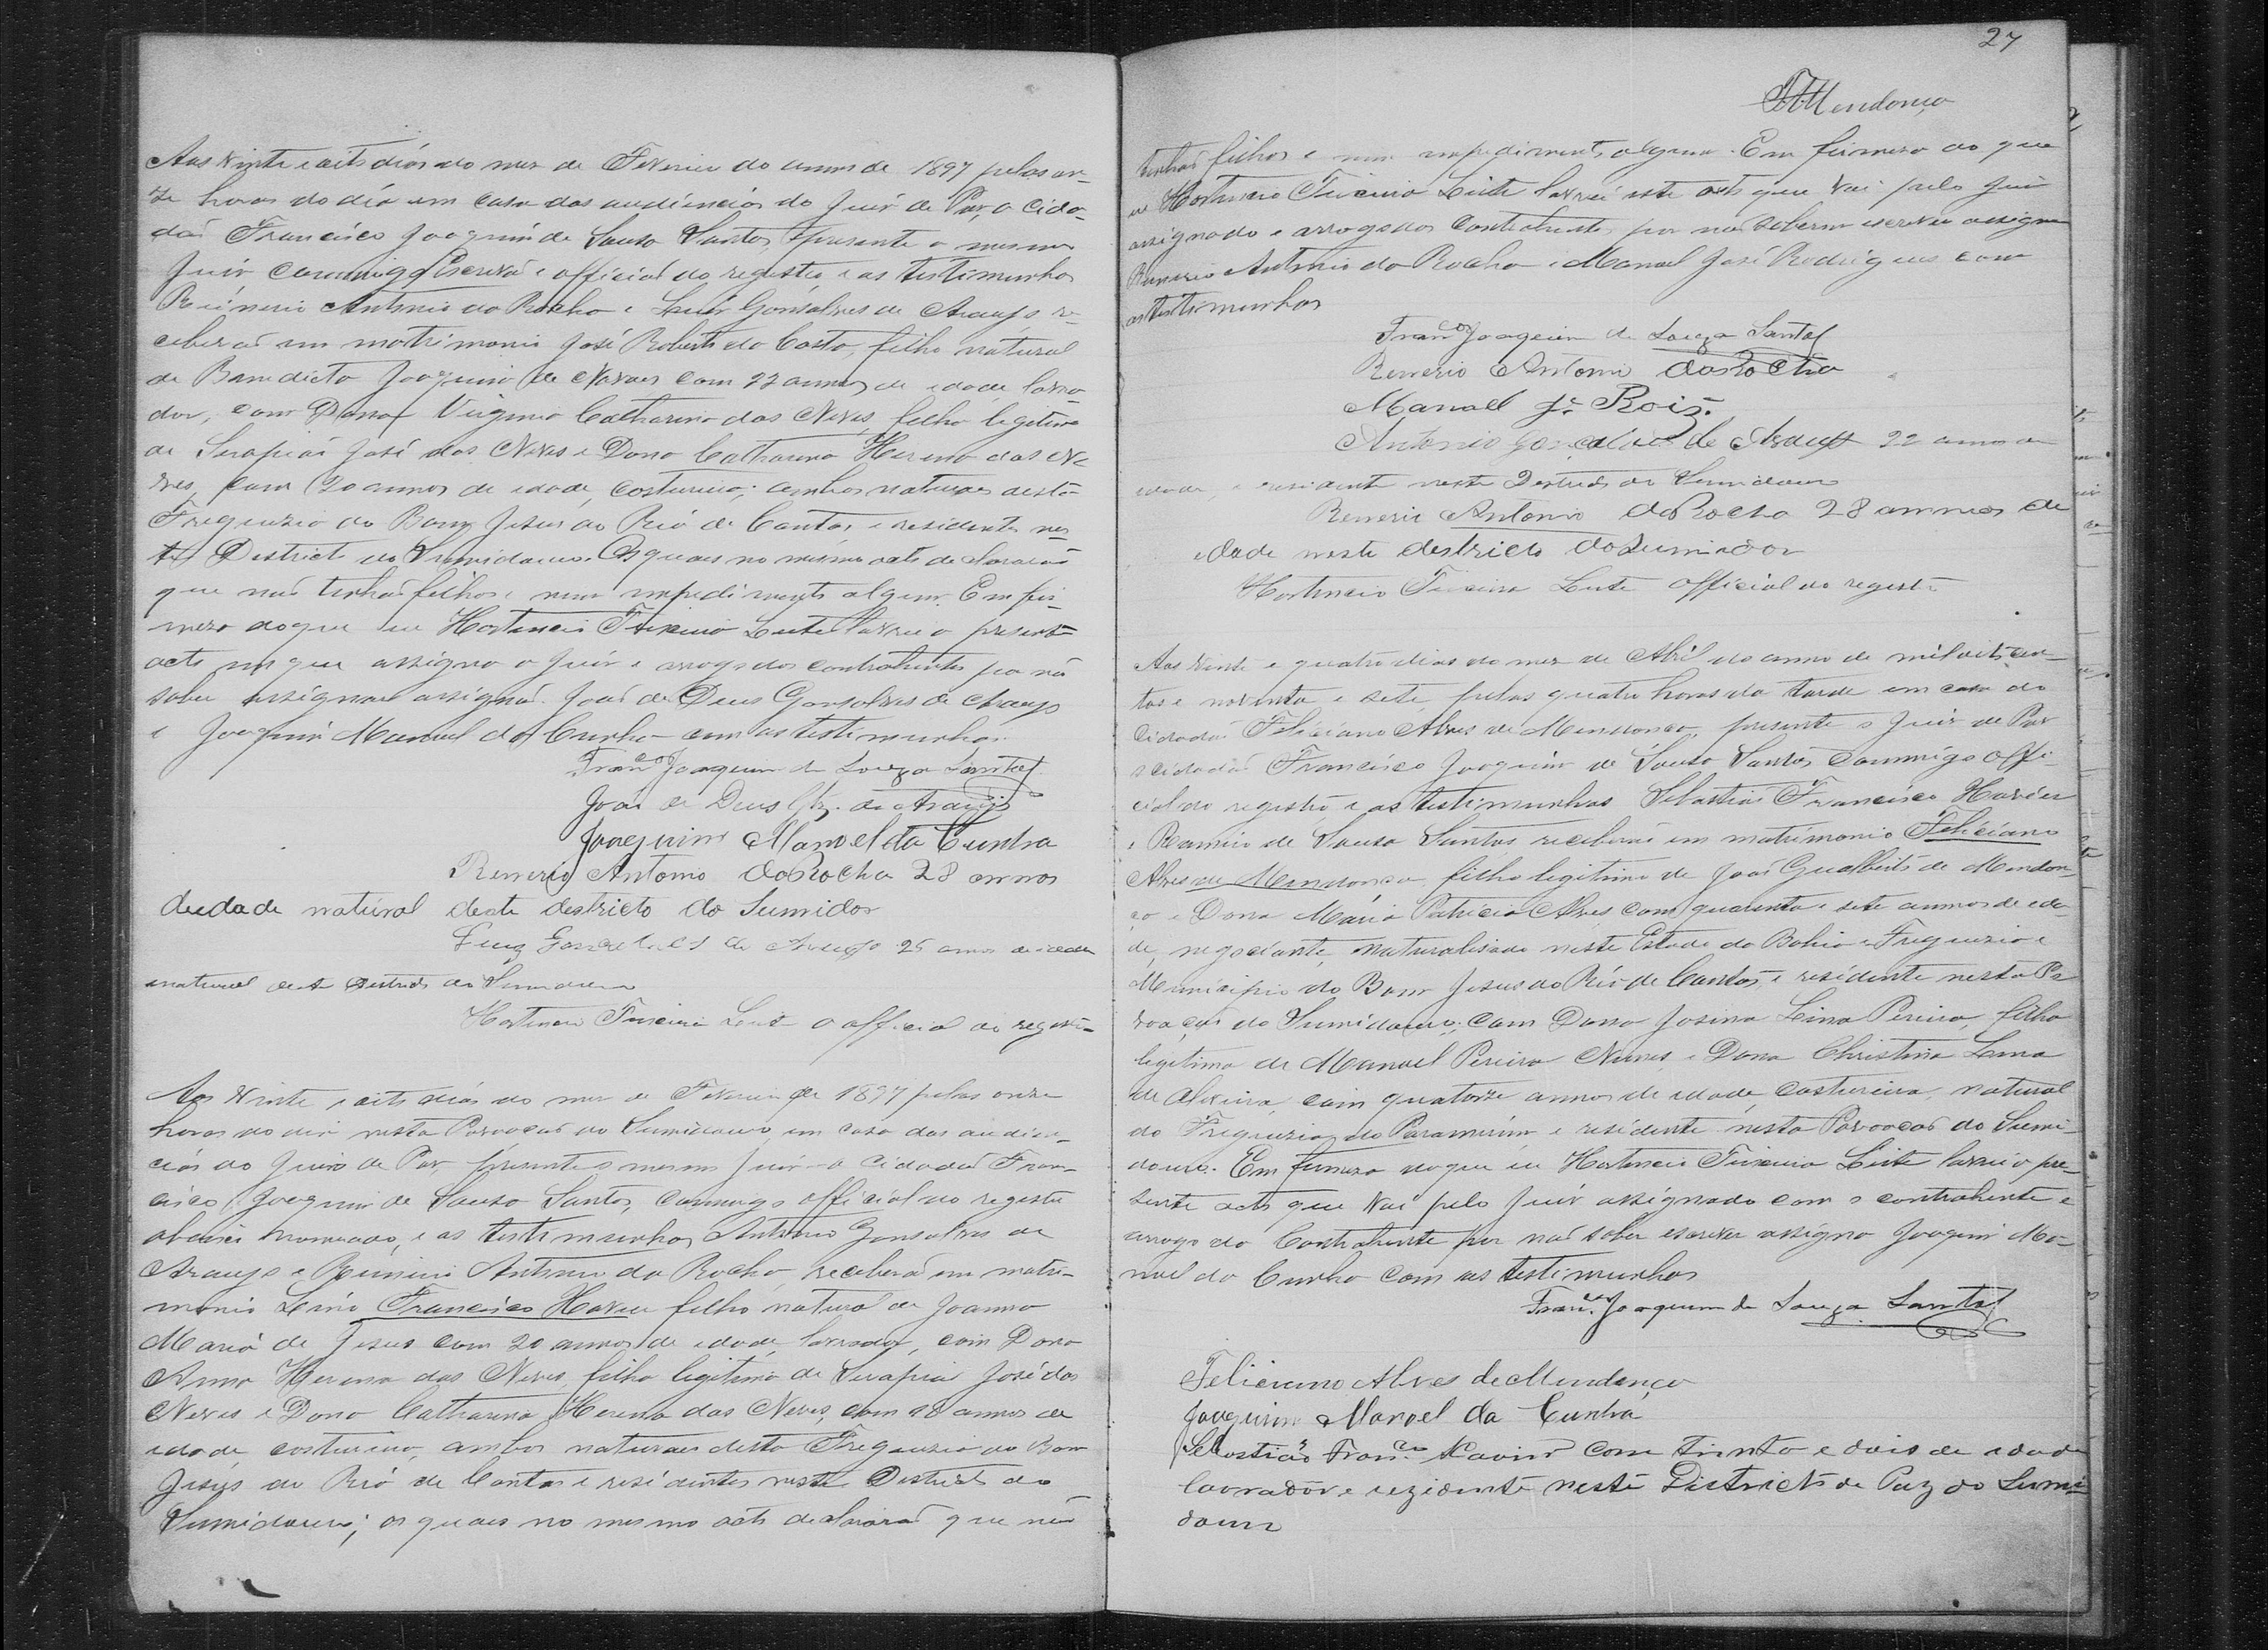 Aos vinte e oito dias do mes de Fevereiro do anno de 1897 pelas on-
ze horas do dia em casa das audiencias do Juiz de Paz o cida-
dão Francisco Joaquim de Souza Santos, presente o mesmo
Juiz commigo Escrivão e official do registro e as testimunhas
Renerio Antonio da Rocha e Luiz Gonsalves de Araujo re-
ceberão em matrimonio José Roberto da Costa, filho natural
de Benedicta Joaquina de Novaes com 22 annos de idade lavra-
dor, com Dona Virginia Catharina das Neves, filha legitima
de Serapião José das Neves e Dona Catharina Herena das Ne
ves, com 20 annos de idade, costureira; ambos naturaes desta
Freguezia do Bom Jesus do Rio de Contas e residentes nes-
te Districto do Sumidouro. Os quaes no mesmo acto declararão
que não tinhão filhos e nem impedimento algum. Em fir-
meza do que eu Hortencio Teixeira Leite lavrei o presente
acto em que assigna o Juiz e arrogo dos contrahentes por não
saber assignar assignão João de Deus Gonsalves de Araujo
e Joaquim Manuel da Cunha com as testimunhas.
Franco Joaquim de Souza Santos
João de Deus Glz. de Araujo
Joaquim Manoel da Cunha
Renerio Antonio da Rocha 28 annos
deidade natural deste destricto do Sumidor
Luiz Gonsalves de Araujo 25 annos de idade
natural deste Destricto do Sumidouro
Hortencio Teixeira Leite o official do registro
Aos vinte e oito dias do mes de Fevereiro de 1897 pelas onze
horas do dia nesta Povoação do Sumidouro, em casa das audien-
cias do Juiz de Paz, presente o mesmo Juiz o cidadão Fran-
cisco Joaquim de Souza Santos, commigo official do registro
abaixo nomeado, e as testimunhas Antonio Gonsalves de
Araujo e Renerio Antonio da Rocha, receberão em matri-
monio Lino Francisco Xavier filho natural de Joanna
Maria de Jesus com 20 annos de idade, lavrador, com Dona
Anna Herena das Neves, filha legitima de Serapião José das
Neves e Dona Catharina Herena das Neves, com 18 annos de
idade, costureira, ambos naturaes desta Freguezia do Bom
Jesus do Rio de Contas e residentes neste Destricto do
Sumidouro; os quaes no mesmo acto declararão que não
27
Mendonça
tinhão filhos e nem impedimento algum. Em firmeza do que
eu Hortencio Teixeira Leite lavrei este acto que vai pelo Juiz
assignado e arrogo dos contrahentes por não saberem escrever assigna
Renerio Antonio da Rocha e Manoel José Rodrigues com
as testimunhas
Franco Joaquim de Souza Santos
Renerio Antonio da Rocha
Manoel Je Roiz.
Antonio Gonsalves de Araujo 22 annos de
idade, e residente neste Destricto do Sumidouro
Renerio Antonio da Rocha 28 annos de
idade neste destricto do Sumidor
Hortencio Teixeira Leite official do registro
Aos vinte e quatro dias do mez de Abril do anno de mil oito cen-
tos e noventa e sete, pelas quatro horas da tarde em casa do
Cidadão Feliciano Alves de Mendonça, presente o Juiz de Paz
o cidadão Francisco Joaquim de Souza Santos commigo offi-
cial do registro e as testimunhas Sebastião Francisco Xavier
e Ramiro de Souza Santos receberão em matrimonio Feliciano
Alves de Mendonça, filho legitimo de João Gualberto de Mendon-
ça e Dona Maria Patricia Alves, com quarenta e sete annos de ida-
de, negociante, naturalisado neste Estado da Bahia e Freguezia e
Municipio do Bom Jesus do Rio de Contas, e residente nesta Po
voação do Sumidouro; com Dona Josina Lina Pereira, filha
legitima de Manoel Pereira Nunes e Dona Christina Lina
de Oliveira, com quatorze annos de idade, costureira, natural
da Freguezia do Paramirim e residente nesta Povoação do Sumi-
douro. Em firmeza do que eu Hortencio Teixeira Leite lavrei o pre-
sente acto que vai pelo Juiz assignado com o contrahente e
arrogo da Contrahente por não saber escrever assigna Joaquim Ma-
noel da Cunha com as testimunhas
Franco Joaquim de Souza Santos
Feliciano Alves de Mendonça
Joaquim Manoel da Cunha
Sebastião Franco Xavier com trinta e dois de idade
lavrador e rezidente neste Districto de Paz do Sumi-
douro